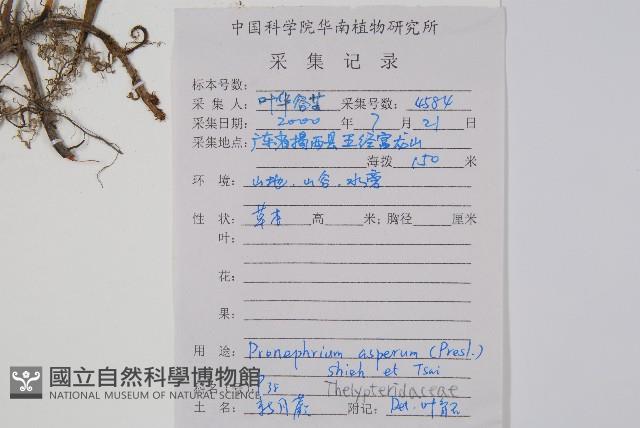 中国科学院华南植物研究所
采集记录
标本号数:
采集人: 叶华谷 采集号数: 4584
采集日期: 2000 年 7 月 21 日
采集地点: 广东省揭西县五经富龙山
海拨 150 米
环境: 山地、山谷、水旁
性状: 草本 高 米; 胸径 厘米
叶:
花:
果:
用途: Pronephrium asperum (Presl.)
Shieh et Tsai
P38 Thelypteridaceae
土名: 新月蕨 附记: Det. 叶
國立自然科學博物館
NATIONAL MUSEUM OF NATURAL SCIENCE